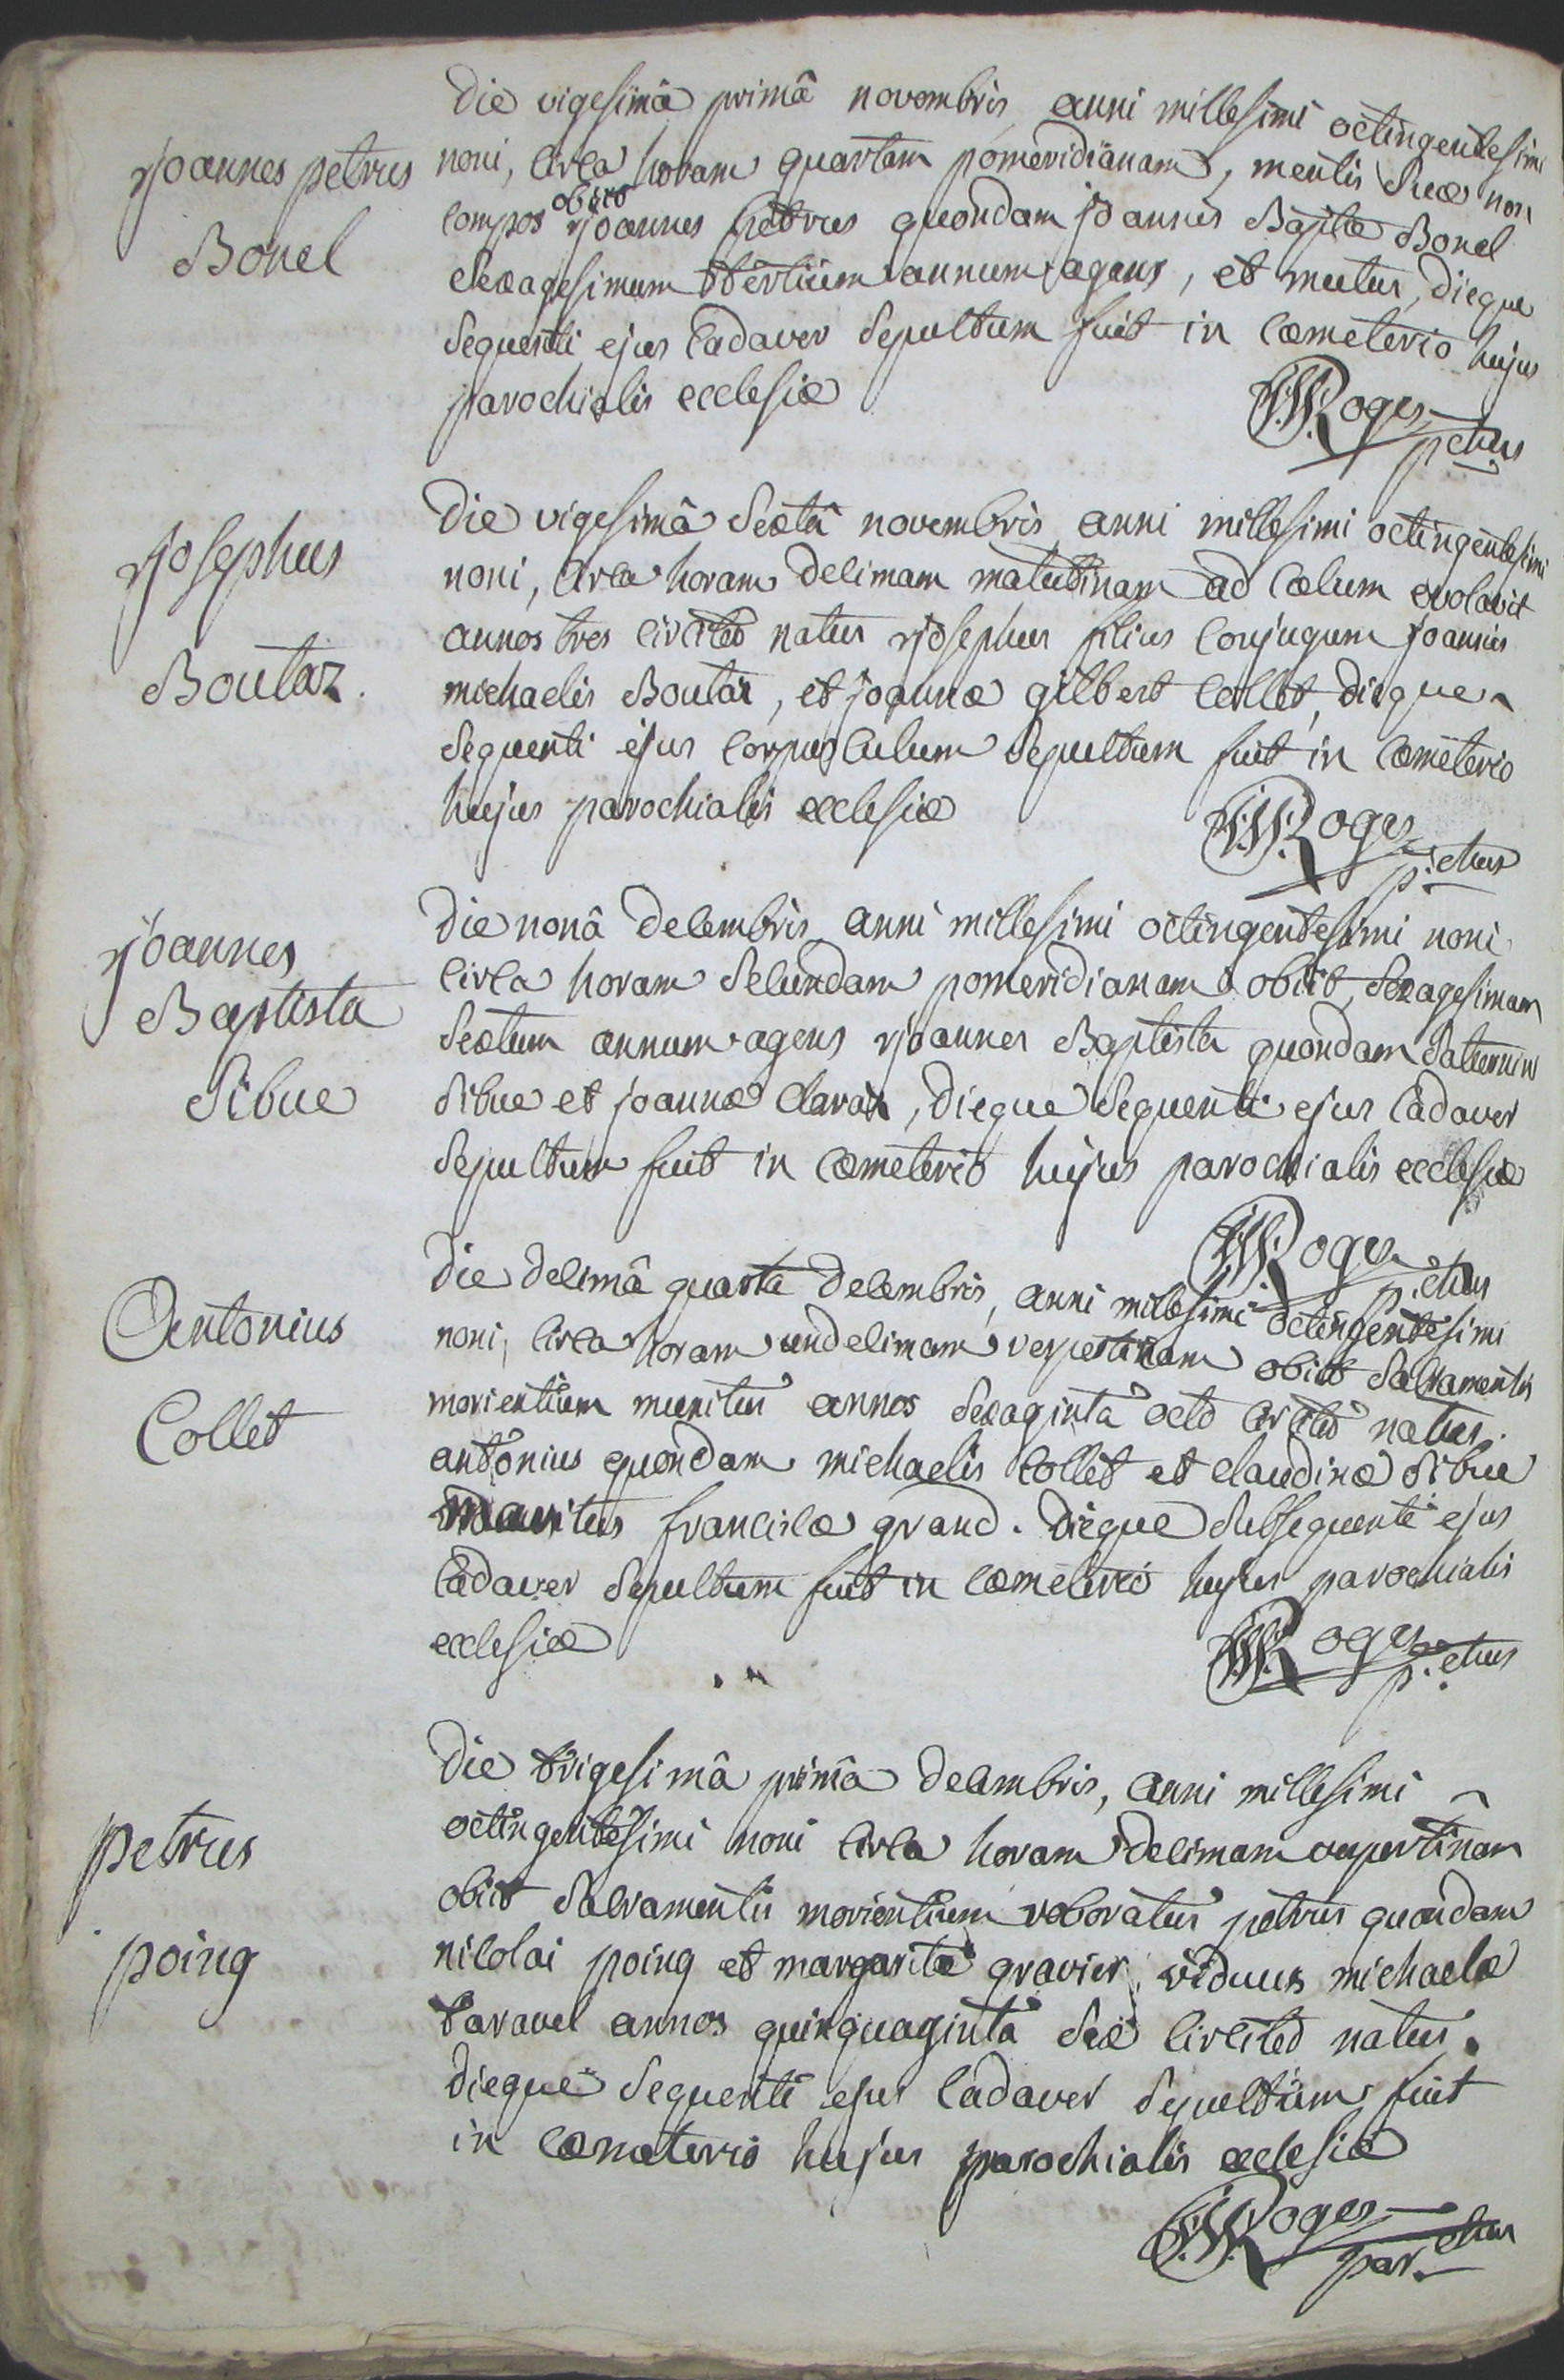 Joannes petrus
Bonel
Die vigesimâ primâ novembris anni millesimi octingentesimi
noni, circa horam quartam pomeridianam, mentis suæ non
obiit
compos Joannes petrus quondam joannis Baptæ Bonel
sexagesimum tertium annum agens, et mutus, dieque
sequenti ejus cadaver sepultum fuit in cœmeterio hujus
parochialis ecclesiæ
Roges
pchus
Josephus
Boutaz.
Die vigesimâ sextâ novembris anni millesimi octingentesimi
noni, circa horam decimam matutinam ad cœlum evolavit
annos tres circiter natus Josephus filius conjugum joannis
michaelis Boutaz, et joannæ gilbert collet, dieque
sequenti ejus corpusculum sepultum fuit in cœmeterio
hujus parochialis ecclesiæ
Roges
p:chus
Joannes
Baptista
Sibue
Die nonâ decembris anni millesimi octingentesimi noni
circa horam secundam pomeridianam obiit, sexagesimam
sextum annum agens Joannes Baptista quondam saturnini
Sibue et joannæ claraz, dieque sequenti ejus cadaver
sepultum fuit in cœmeterio hujus parochialis ecclesiæ
Roges
p:chus
Antonius
Collet
Die decimâ quarta decembris, anni millesimi octingentesimi
noni, circa horam undecimam vespertinam obiit sacramentis
morientium munitus annos sexaginta octo circiter natus.
antonius quondam michaelis collet et claudinæ sibue
maritus franciscæ grand. Dieque subsequenti ejus
cadaver sepultum fuit in cœmeterio hujus parochialis
ecclesiæ
Roges
p:chus
petrus
poing
Die trigesimâ primâ decembris, anni millesimi
octingentesimi noni circa horam decimam vespertinam
obiit sacramentis morientium roboratus petrus quondam
nicolai poing et margaritæ gravier, viduus michaelæ
taravel annos quinquaginta sex circiter natus.
dieque sequenti ejus cadaver sepultum fuit
in cœmeterio hujus parochialis ecclesiæ
Roges
par:chus